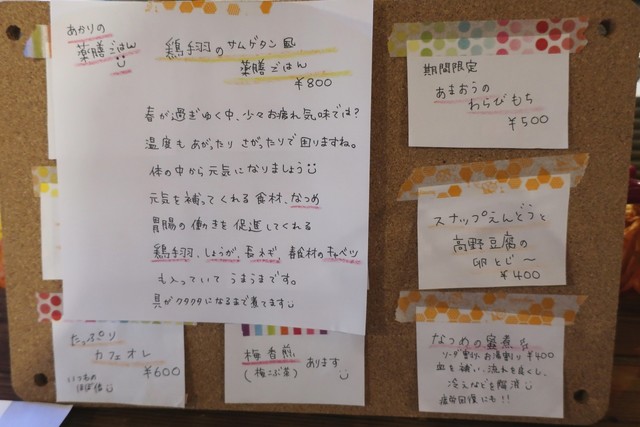 あかりの
薬膳ごはん
鶏手羽のサムゲタン風
薬膳ごはん
¥800
春が過ぎゆく中、少々お疲れ気味では?
温度もあがったりさがったりで困りますね。
体の中から元気になりましょう
元気を補ってくれる食材、なつめ
胃腸の働きを促進してくれる
鶏手羽、しょうが、長ネギ、春食材のキャベツ
も入っていてうまうまです。
具がクタクタになるまで煮てます
期間限定
あまおうの
わらびもち
¥500
スナップえんどうと
高野豆腐の
卵とじ〜
¥400
たっぷり
カフェオレ
¥600
いつもの
ほぼ倍
梅香煎
(梅こぶ茶)
あります
なつめの蜜煮
ソーダ割り、お湯割り ¥400
血を補い、流れを良くし、
冷えなどを解消
疲労回復にも!!